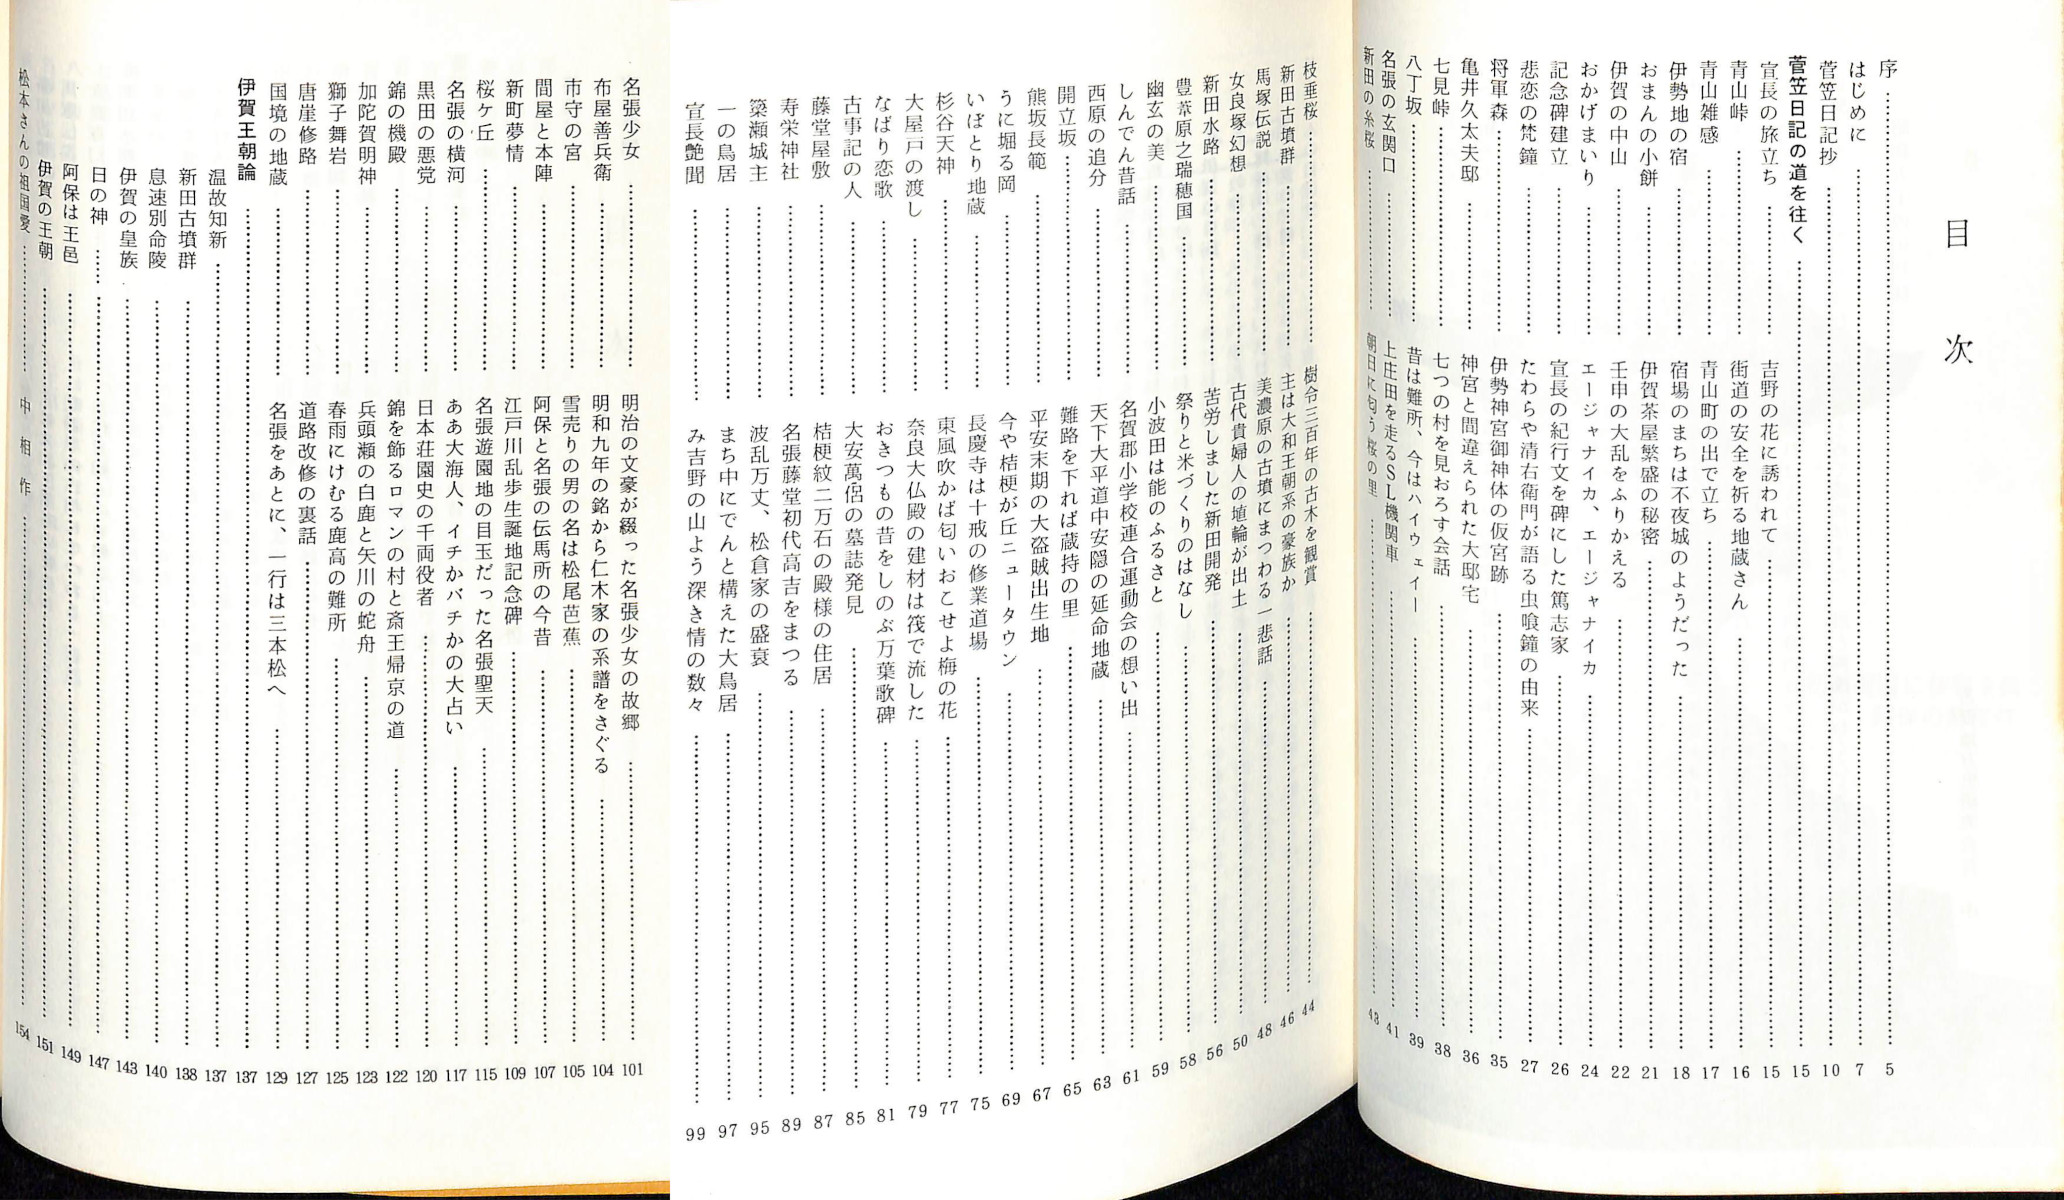 目次
序 5
はじめに 7
菅笠日記抄 10
菅笠日記の道を往く 15
宣長の旅立ち 吉野の花に誘われて 15
青山峠 街道の安全を祈る地蔵さん 16
青山雑感 青山町の出で立ち 17
伊勢地の宿 宿場のまちは不夜城のようだった 18
おまんの小餅 伊賀茶屋繁盛の秘密 21
伊賀の中山 壬申の大乱をふりかえる 22
おかげまいり エージャナイカ、エージャナイカ 24
記念碑建立 宣長の紀行文を碑にした篤志家 26
悲恋の梵鐘 たわらや清右衛門が語る虫喰鐘の由来 27
将軍森 伊勢神宮御神体の仮宮跡 35
亀井久太夫邸 神宮と間違えられた大邸宅 36
七見峠 七つの村を見おろす会話 38
八丁坂 昔は難所、今はハイウェイー 39
名張の玄関口 上庄田を走るSL機関車 41
新田の糸桜 朝日に匂う桜の里 43
枝垂桜 樹令三百年の古木を観賞 44
新田古墳群 主は大和王朝系の豪族か 46
馬塚伝説 美濃原の古墳にまつわる一悲話 48
女良塚幻想 古代貴婦人の埴輪が出土 50
新田水路 苦労しました新田開発 56
豊葦原之瑞穂国 祭りと米づくりのはなし 58
幽玄の美 小波田は能のふるさと 59
しんでん昔話 名賀郡小学校連合運動会の想い出 61
西原の追分 天下大平道中安隠の延命地蔵 63
開立坂 難路を下れば蔵持の里 65
熊坂長範 平安末期の大盗賊出生地 67
うに堀る岡 今や桔梗が丘ニュータウン 69
いぼとり地蔵 長慶寺は十戒の修業道場 75
杉谷天神 東風吹かば匂いおこせよ梅の花 77
大屋戸の渡し 奈良大仏殿の建材は筏で流した 79
なばり恋歌 おきつもの昔をしのぶ万葉歌碑 81
古事記の人 大安萬侶の墓誌発見 85
藤堂屋敷 桔梗紋二万石の殿様の住居 87
寿栄神社 名張藤堂初代高吉をまつる 89
簗瀬城主 波乱万丈、松倉家の盛衰 95
一の鳥居 まち中にでんと構えた大鳥居 97
宣長艶聞 み吉野の山よう深き情の数々 99
名張少女 明治の文豪が綴った名張少女の故郷 101
布屋善兵衛 明和九年の銘から仁木家の系譜をさぐる 104
市守の宮 雪売りの男の名は松尾芭蕉 105
問屋と本陣 阿保と名張の伝馬所の今昔 107
新町夢情 江戸川乱歩生誕地記念碑 109
桜ケ丘 名張遊園地の目玉だった名張聖天 115
名張の横河 ああ大海人、イチかバチかの大占い 117
黒田の悪党 日本荘園史の千両役者 120
錦の機殿 錦を飾るロマンの村と斎王帰京の道 122
加陀賀明神 兵頭瀬の白鹿と矢川の蛇舟 123
獅子舞岩 春雨にけむる鹿高の難所 125
唐崖修路 道路改修の裏話 127
国境の地蔵 名張をあとに、一行は三本松へ 129
伊賀王朝論 137
温故知新 137
新田古墳群 138
息速別命陵 140
伊賀の皇族 143
日の神 147
阿保は王邑 149
伊賀の王朝 151
松本さんの祖国愛 中 相作 154